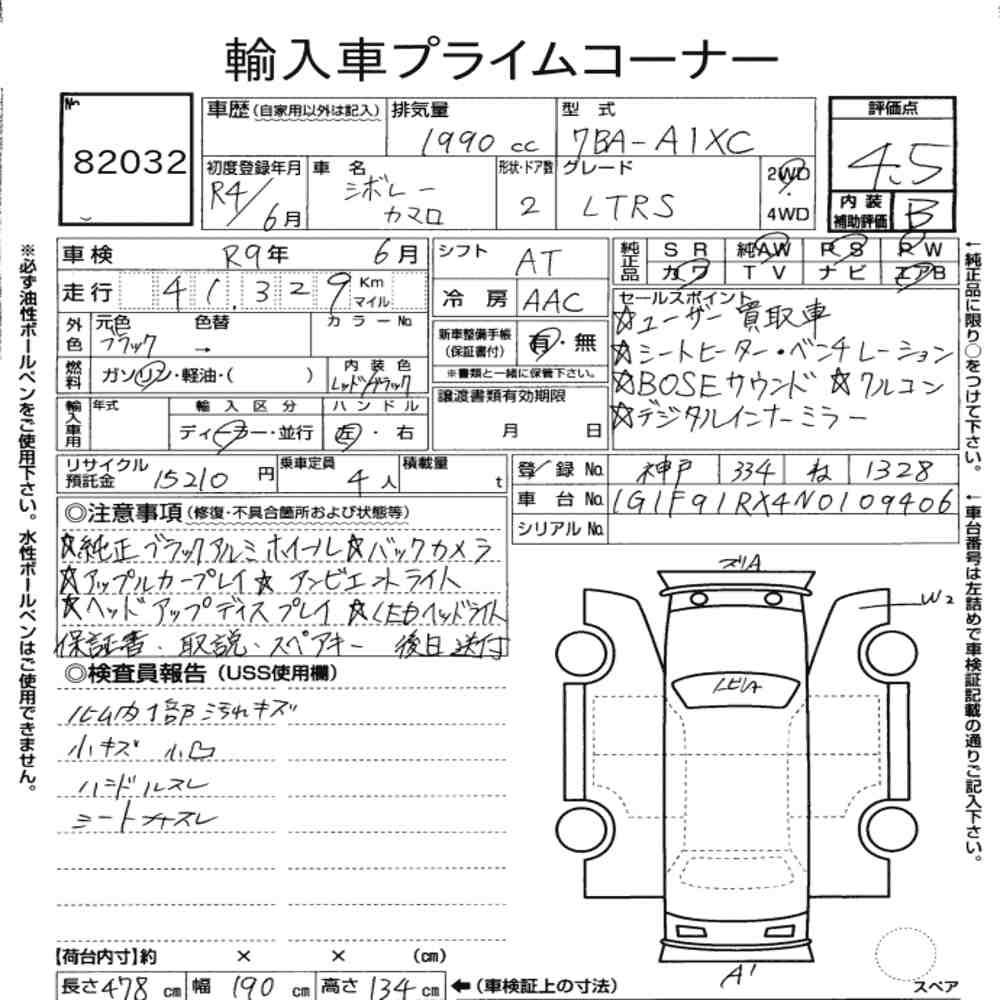 輸入車プライムコーナー
No. 82032
車歴(自家用以外は記入)
排気量 1990 cc
型式 7BA-A1XC
評価点 4.5
初度登録年月 R4/6月
車名 シボレー カマロ
形状・ドア数 2
グレード LTRS
2WD・4WD
内装補助評価 B
車検 R9年 6月
シフト AT
純正品 SR 純AW PS PW
カワ TV ナビ エアB
走行 41.329 Km マイル
冷房 AAC
外色 元色 ブラック 色替 → カラーNo.
新車整備手帳(保証書付) 有・無
※書類と一緒に保管下さい。
セールスポイント
☆ユーザー買取車
☆シートヒーター・ベンチレーション
☆BOSEサウンド ☆クルコン
☆デジタルインナーミラー
燃料 ガソリン・軽油・( )
内装色 レッド/ブラック
譲渡書類有効期限 月 日
輸入車用 年式 輸入区分 ディーラー・並行 ハンドル 左・右
リサイクル預託金 15210 円
乗車定員 4人
積載量 t
登録No. 神戸 334 ね 1328
車台No. 1G1F91RX4N0109406
シリアルNo.
◎注意事項(修復・不具合箇所および状態等)
☆純正ブラックアルミホイール☆バックカメラ
☆アップルカープレイ☆アンビエントライト
☆ヘッドアップディスプレイ☆LEDヘッドライト
保証書・取説・スペアキー 後日送付
◎検査員報告(USS使用欄)
内1部汚れキズ
小キズ 小凹
ハンドルスレ
シートスレ
【荷台内寸】約 × × (cm)
長さ478cm 幅190cm 高さ134cm ←(車検証上の寸法)
※必ず油性ボールペンをご使用下さい。水性ボールペンはご使用できません。
←純正品に限り○をつけて下さい。
←車台番号は左詰めで車検証記載の通りご記入下さい。
W2
A1
スペア